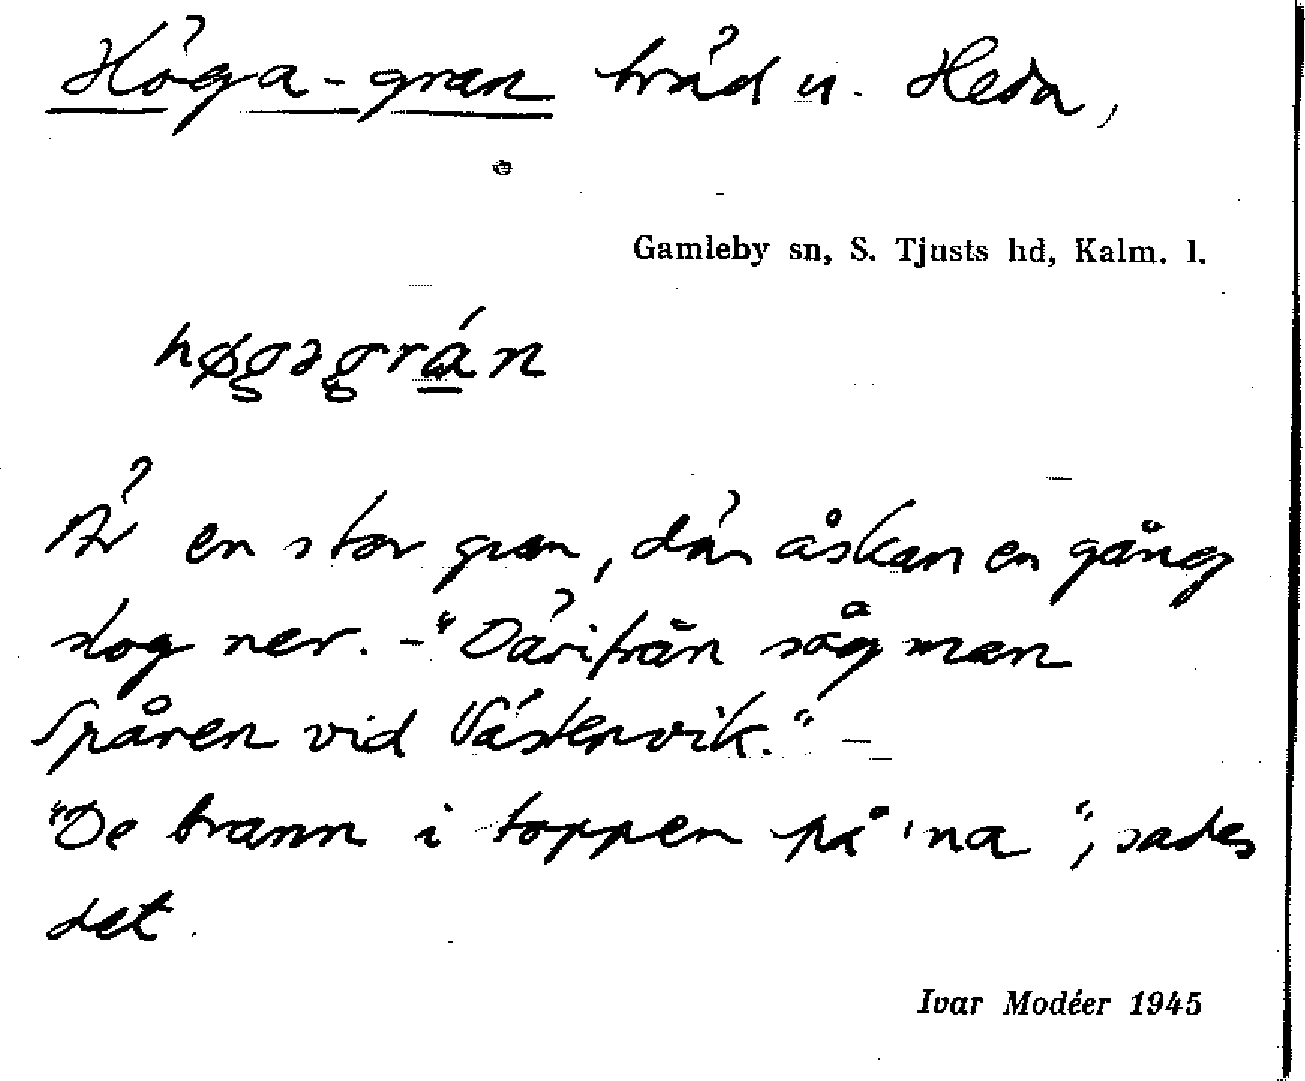 Höga-gran träd u. Heda,
Gamleby sn, S. Tjusts hd, Kalm. l.
høgəgrán
Är en stor gran, där åskan en gång
slog ner. – "Därifrån såg man
Spåren vid Västervik." –
"De brann i toppen på 'na", sades
det.
Ivar Modéer 1945